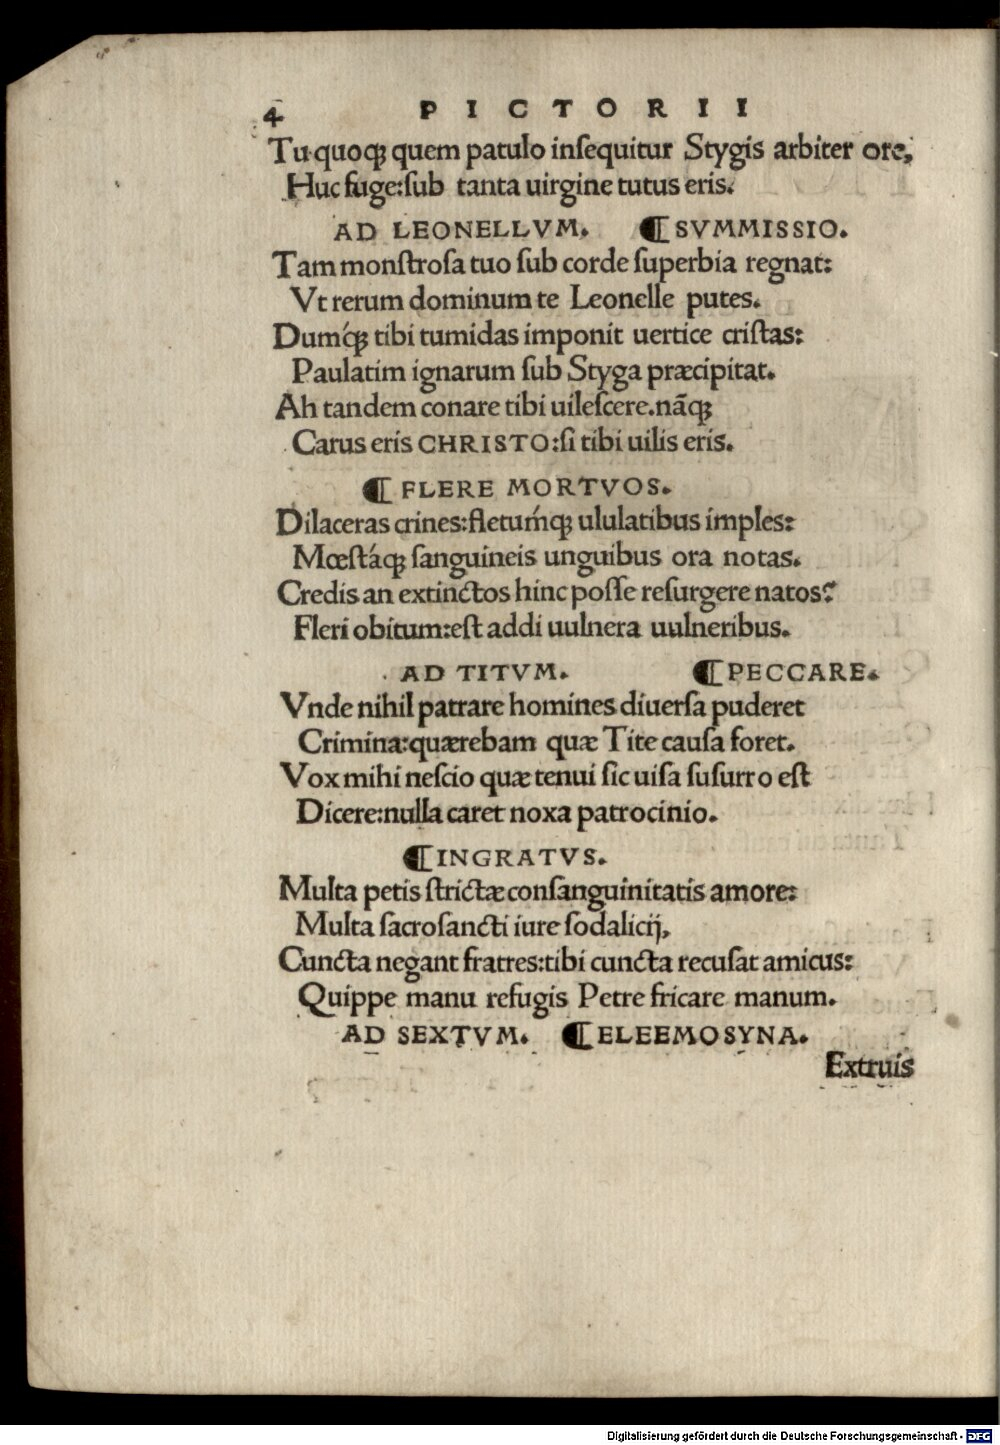 4 PICTORII
Tu quoqꝫ quem patulo inſequitur Stygis arbiter ore,
Huc fuge:ſub tanta uirgine tutus eris.
AD LEONELLVM. ¶ SVMMISSIO.
Tam monſtroſa tuo ſub corde ſuperbia regnat:
Vt rerum dominum te Leonelle putes.
Dumq́ꝫ tibi tumidas imponit uertice criſtas:
Paulatim ignarum ſub Styga præcipitat.
Ah tandem conare tibi uileſcere.nãqꝫ
Carus eris CHRISTO:ſi tibi uilis eris.
¶ FLERE MORTVOS.
Dilaceras crines:fletumq́ꝫ ululatibus imples:
Mœſtáqꝫ ſanguineis unguibus ora notas.
Credis an extinctos hinc poſſe reſurgere natos?
Fleri obitum:eſt addi uulnera uulneribus.
AD TITVM. ¶ PECCARE.
Vnde nihil patrare homines diuerſa puderet
Crimina:quærebam quæ Tite cauſa foret.
Vox mihi neſcio quæ tenui ſic uiſa ſuſurro eſt
Dicere:nulla caret noxa patrocinio.
¶ INGRATVS.
Multa petis ſtrictæ conſanguinitatis amore:
Multa ſacroſancti iure ſodalicij,
Cuncta negant fratres:tibi cuncta recuſat amicus:
Quippe manu refugis Petre fricare manum.
AD SEXTVM. ¶ ELEEMOSYNA.
Extruis
Digitalisierung gefördert durch die Deutsche Forschungsgemeinschaft - DFG